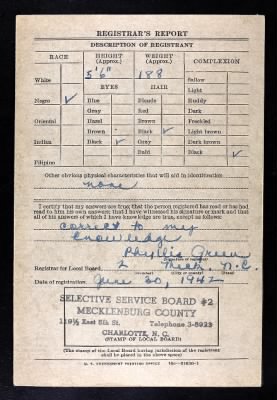 REGISTRAR'S REPORT
DESCRIPTION OF REGISTRANT
RACE HEIGHT (Approx.) WEIGHT (Approx.) COMPLEXION
5'6" 188
White Sallow
EYES HAIR Light
Negro ✓ Blue Blonde Ruddy
Gray Red Dark
Oriental Hazel Brown Freckled
Brown Black ✓ Light brown
Indian Black ✓ Gray Dark brown
Bald Black ✓
Filipino
Other obvious physical characteristics that will aid in identification
none
I certify that my answers are true; that the person registered has read or has had
read to him his own answers; that I have witnessed his signature or mark and that
all of his answers of which I have knowledge are true, except as follows:
correct to my
knowledge
Phyllis Green
(Signature of registrar)
Registrar for Local Board 2 Meck. N.C.
(Number) (City or county) (State)
Date of registration June 30, 1942
SELECTIVE SERVICE BOARD #2
MECKLENBURG COUNTY
119½ East 5th St. Telephone 3-8923
CHARLOTTE, N. C.
(STAMP OF LOCAL BOARD)
(The stamp of the Local Board having jurisdiction of the registrant
shall be placed in the above space)
U. S. GOVERNMENT PRINTING OFFICE